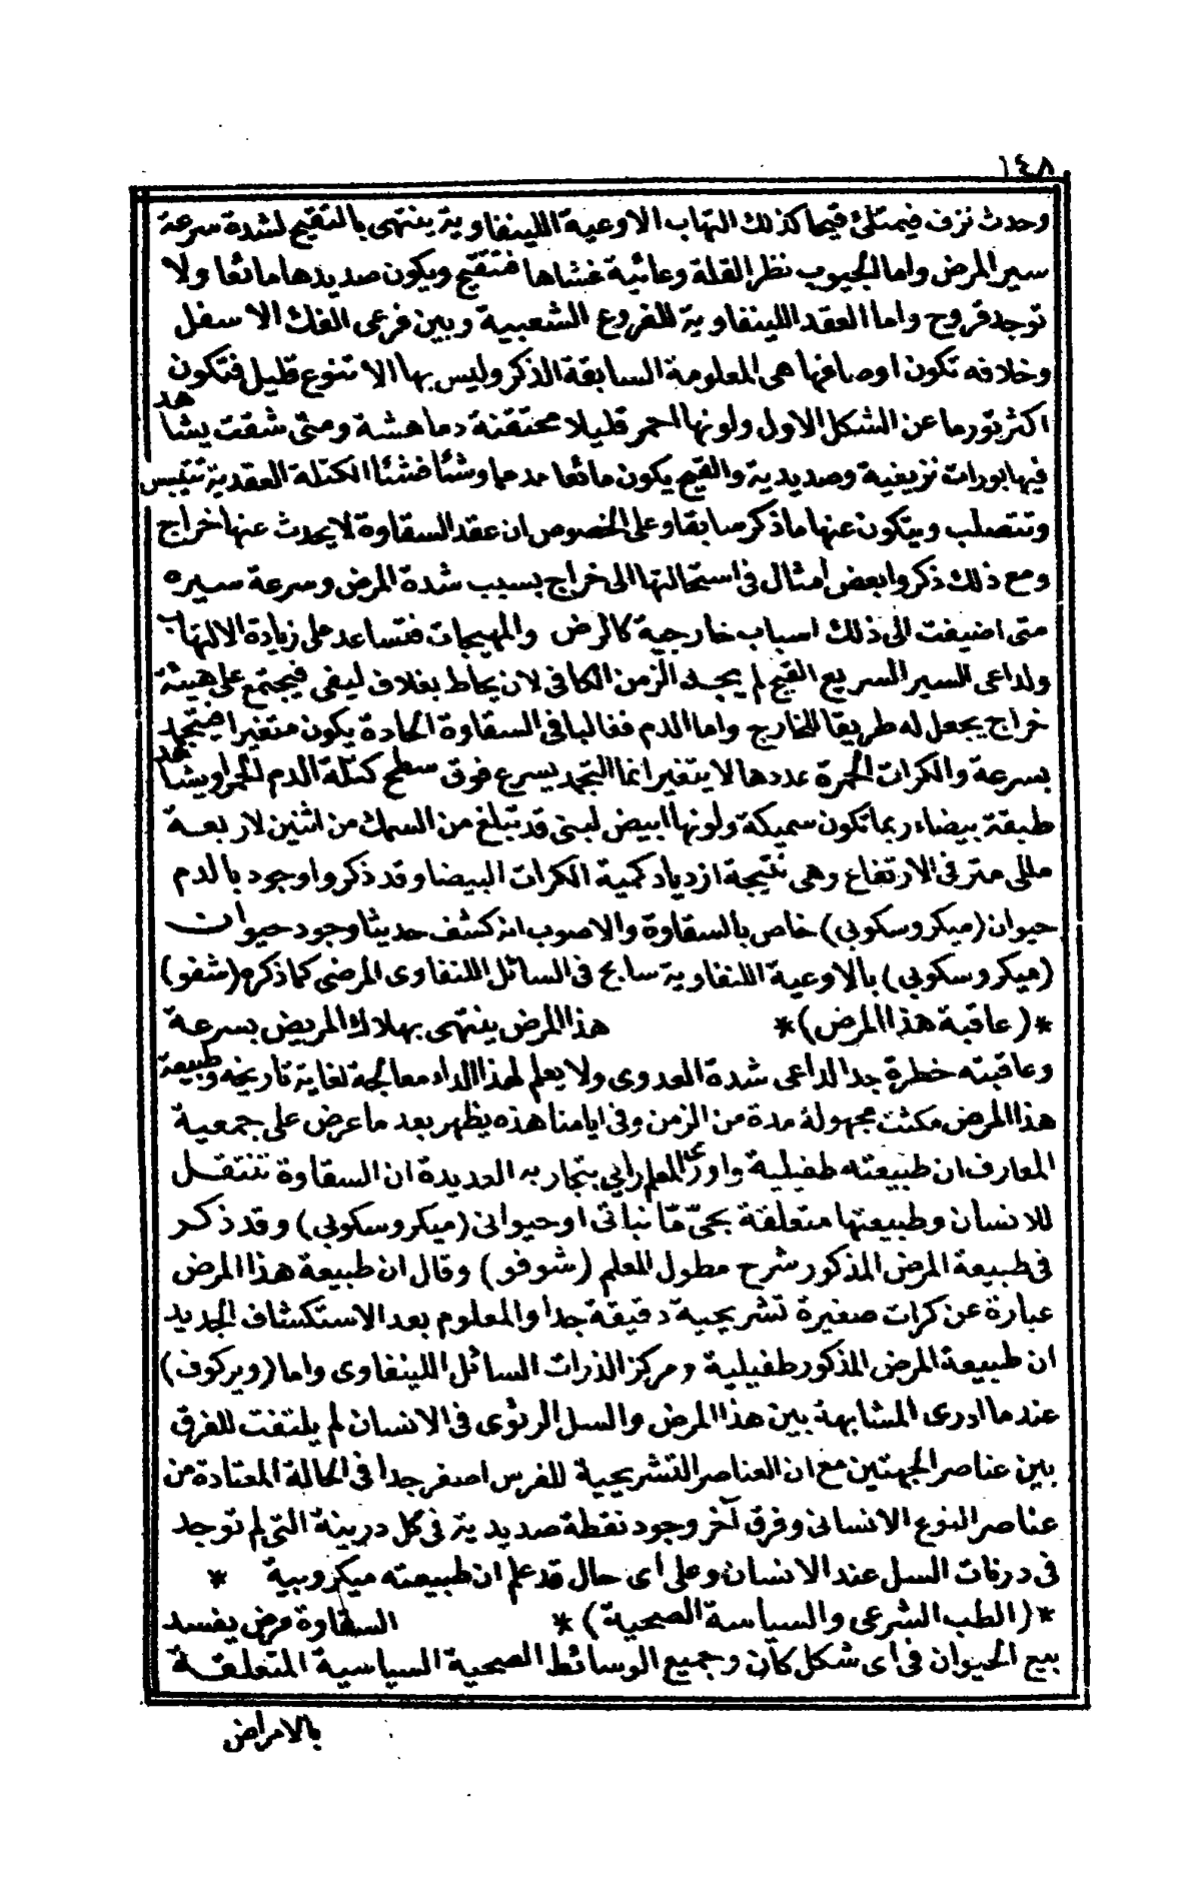 ١٤٨
وحدث نزف فيمتلئ قيحا كذلك التهاب الاوعية اللينفاوية ينتهى بالتقيح لشدة سرعة
سير المرض واما الجيوب نظر القلة وعائية غشاها فتتقيح ويكون صديدها مائعا ولا
توجد قروح واما العقد اللينفاوية للفروع الشعبية وبين فرعى الفك الاسفل
وخلافه تكون اوصافها هى المعلومة السابقة الذكر وليس بها الا تنوع قليل فتكون
اكثر تورما عن الشكل الاول ولونها احمر قليلا محتقنة دما هشة ومتى شقت يشاهد
فيها بورات نزيفية وصديدية والقيح يكون مائعا مدمما وشئا فشئا الكتلة العقدية تتيبس
وتتصلب ويتكون عنها ما ذكر سابقا وعلى الخصوص ان عقد السقاوة لا يحدث عنها خراج
ومع ذلك ذكروا بعض أمثال فى استحالتها الى خراج بسبب شدة المرض وسرعة سيره
متى اضيفت الى ذلك اسباب خارجية كالرض والمهيجات فتساعد على زيادة الالتهاب
ولداعى السير السريع القيح لم يجد الزمن الكافى لان يحاط بغلاف ليفى فيجتمع على هيئة
خراج يجعل له طريقا للخارج واما الدم فغالبا فى السقاوة الحادة يكون متغيرا فيتجمد
بسرعة والكرات الحمرة عددها لا يتغير انما التجمد يسرع فوق سطح كتلة الدم الحمرا ويشاهد
طبقة بيضاء ربما تكون سميكة ولونها ابيض لبنى قد تبلغ من السمك من اثنين لاربعة
مللى متر فى الارتفاع وهى نتيجة ازدياد كمية الكرات البيضا وقد ذكروا وجود بالدم
حيوان (ميكروسكوبى) خاص بالسقاوة والاصوب انه كشف حديثا وجود حيوان
(ميكروسكوبى) بالاوعية اللنفاوية سابح فى السائل اللنفاوى المرضى كما ذكره (شفو)
*(عاقبة هذا المرض)* هذا المرض ينتهى بهلاك المريض بسرعة
وعاقبته خطرة جدا لداعى شدة العدوى ولا يعلم لهذا الداء معالجة لغاية تاريخه وطبيعة
هذا المرض مكثت مجهولة مدة من الزمن وفى ايامنا هذه يظهر بعد ما عرض على جمعية
المعارف ان طبيعته طفيلية واورى المعلم رابى بتجاربه العديدة ان السقاوة تنتقل
للانسان وطبيعتها متعلقة بحىّ مّا نباتى او حيوانى (ميكروسكوبى) وقد ذكر
فى طبيعة المرض المذكور شرح مطول المعلم (شوفو) وقال ان طبيعة هذا المرض
عبارة عن كرات صغيرة تشريحية دقيقة جدا والمعلوم بعد الاستكشاف الجديد
ان طبيعة المرض المذكور طفيلية ومركز الذرات السائل اللينفاوى واما (ويركوف)
عندما ادرى المشابهة بين هذا المرض والسل الرئوى فى الانسان لم يلتفت للفرق
بين عناصر الجهتين مع ان العناصر التشريحية للفرس اصغر جدا فى الحالة المعتادة من
عناصر النوع الانسانى وفرق آخر وجود نقطة صديدية فى كل درينة التى لم توجد
فى درنات السل عند الانسان وعلى أى حال قد علم ان طبيعته ميكروبية *
*(الطب الشرعى والسياسة الصحية)* السقاوة مرض يفسد
بيع الحيوان فى أى شكل كان وجميع الوسائط الصحية السياسية المتعلقة
بالامراض